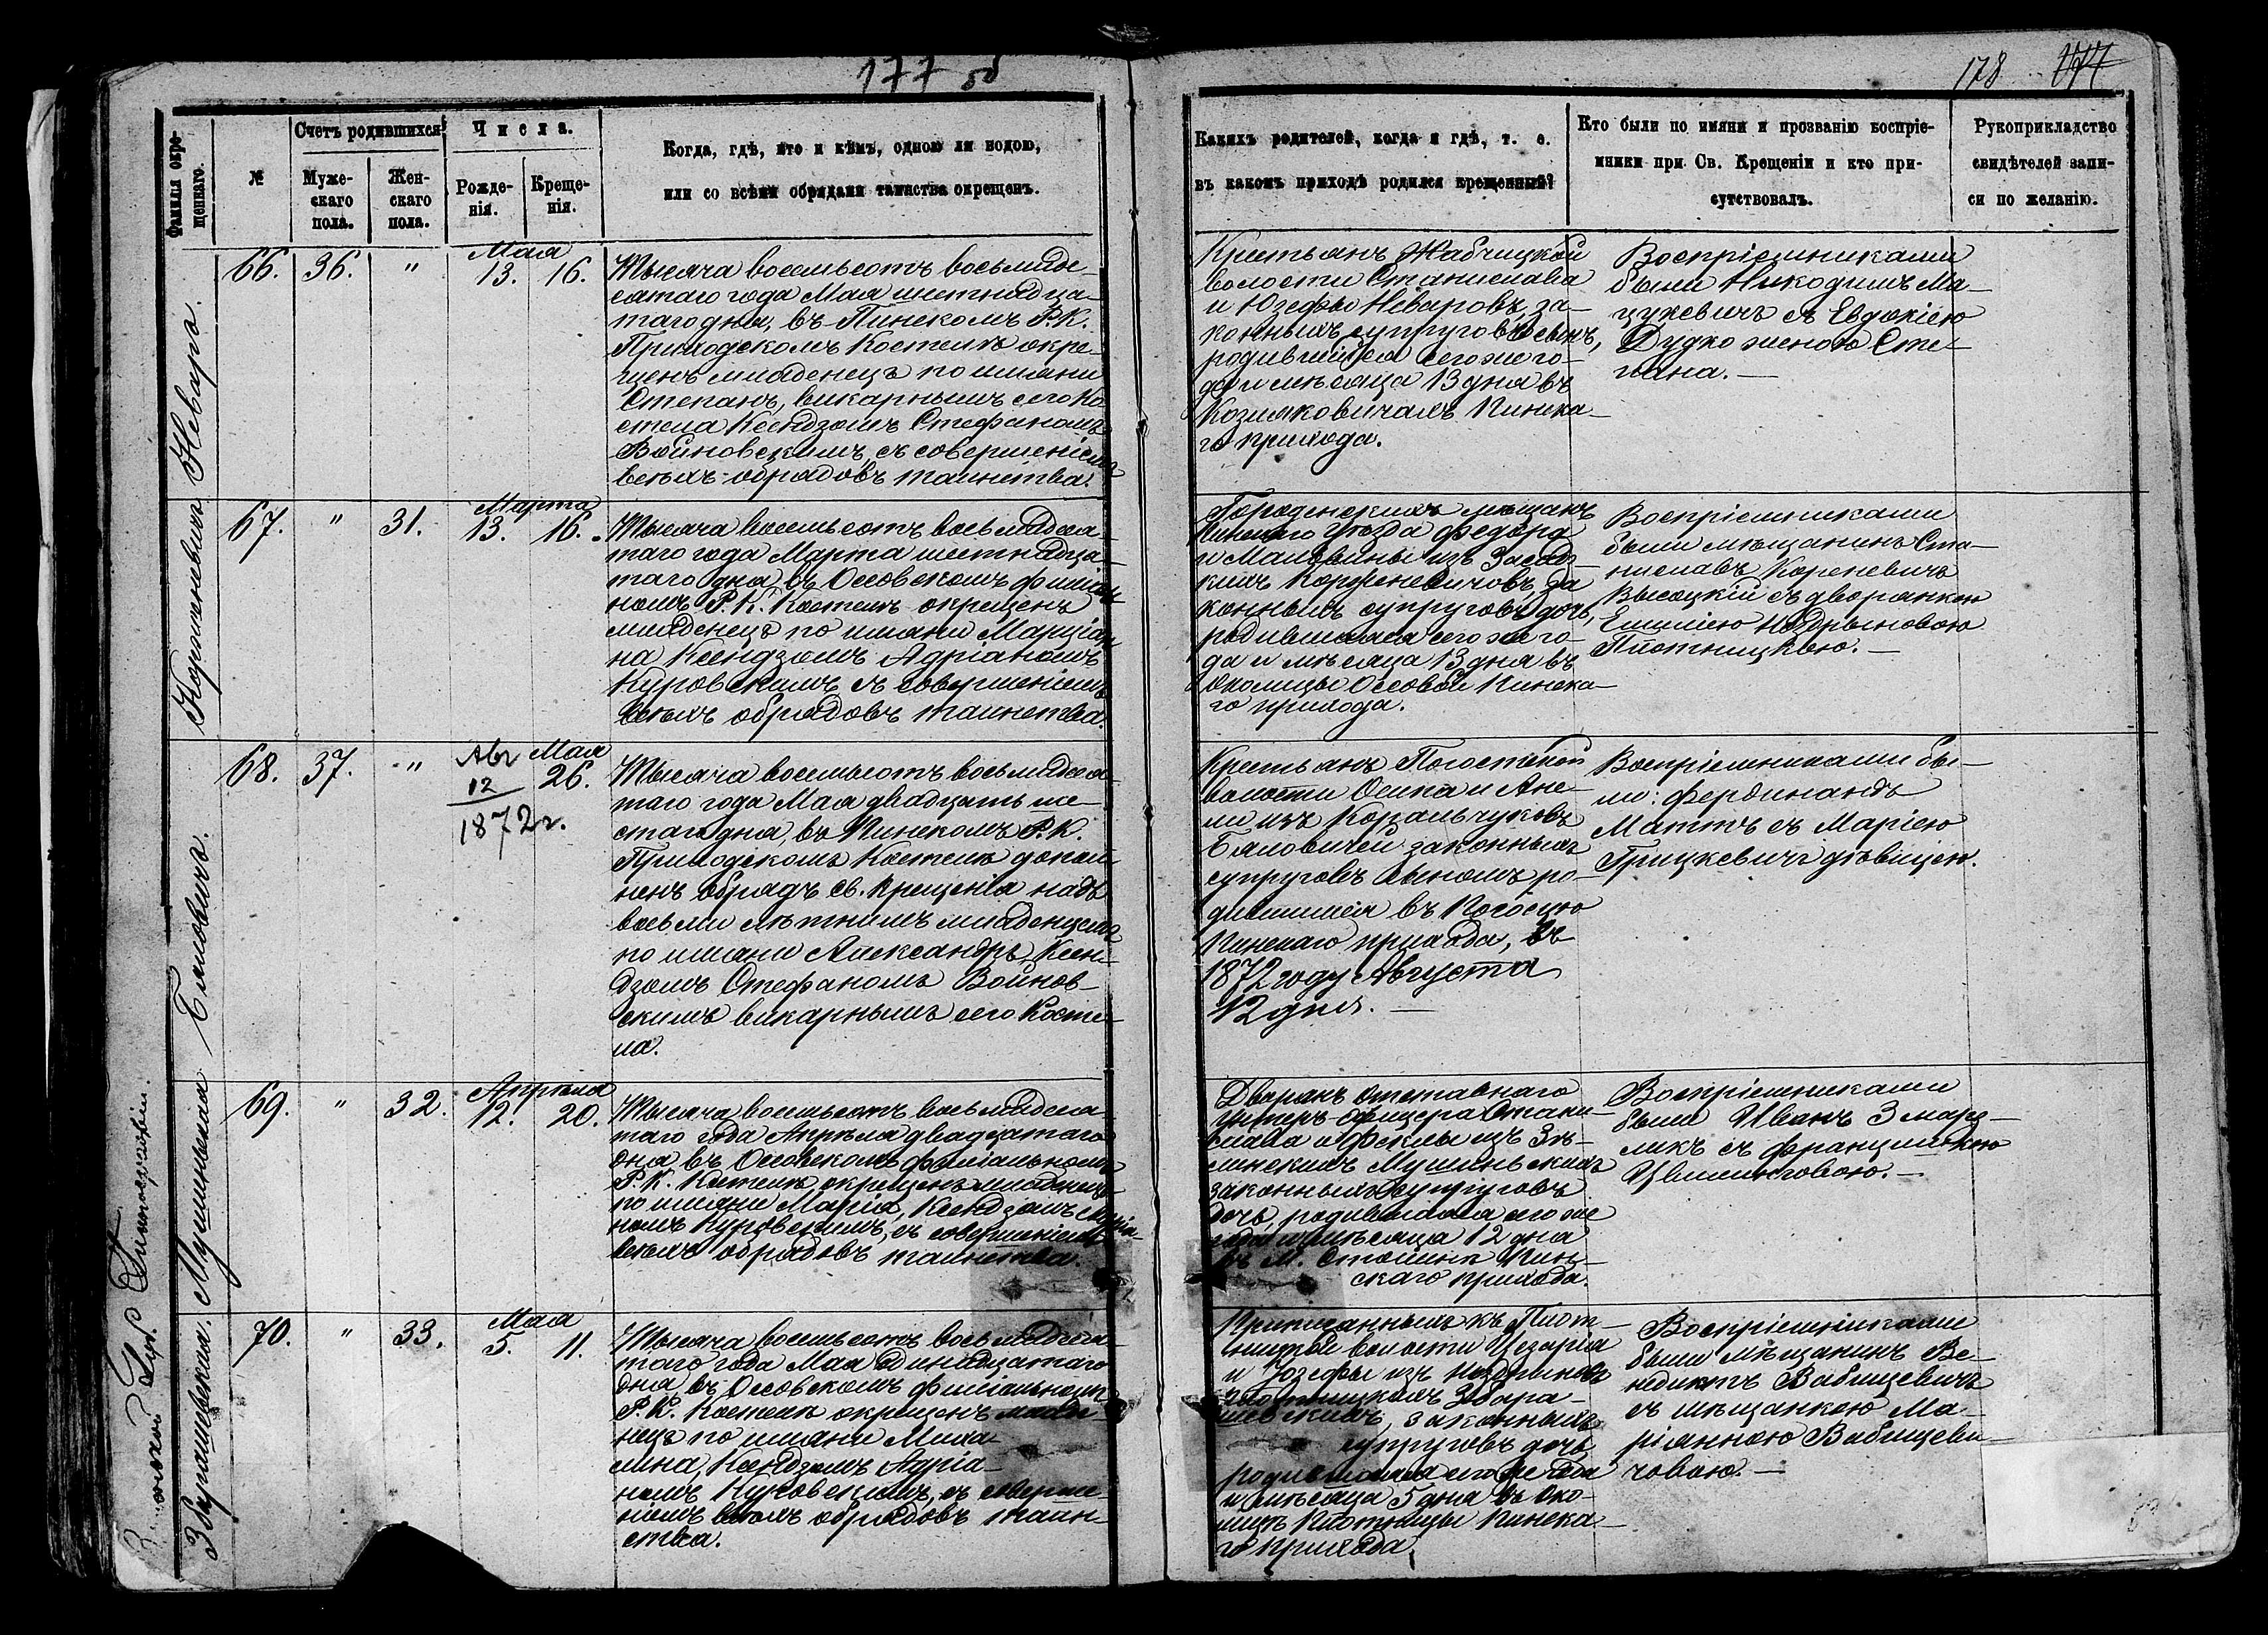 177 об
178 177
Фамилія окре-
щеннаго.
№
Счетъ родившихся
Муже-
скаго
пола.
Жен-
скаго
пола.
Числа.
Рожде-
нія.
Креще-
нія.
Когда, гдѣ, кто и кѣмъ, одною ли водою,
или со всѣми обрядами таинства окрещенъ.
Какихъ родителей, когда и гдѣ, т. е.
въ какомъ приходѣ родился крещенный?
Кто были по имяни и прозванію воспріе-
мники при Св. Крещеніи и кто при-
сутствовалъ.
Рукоприкладство
свидѣтелей запи-
си по желанію.
Неваръ.
66. 36. "
Мая
13. 16.
Тысяча восемьсотъ восьмиде-
сятаго года Мая шестнадца-
таго дня, въ Пинскомъ Р.К.
Приходскомъ Костелѣ окре-
щенъ младенецъ по имяни
Степанъ, викарнымъ сего Ко-
стела Ксендзомъ Стефаномъ
Войновскимъ, съ совершеніемъ
всѣхъ обрядовъ таинства.
Крестьянъ Жабчицкой
волости Станислава
и Юзефы Неваровъ, за-
конныхъ супруговъ сынъ,
родившійся сего же го-
да и мѣсяца 13 дня въ
Козляковичахъ Пинска-
го прихода.
Воспріемниками
были Никодимъ Ма-
цукевичъ съ Евдокіею
Дудко женою Сте-
пана.—
Корженевичъ
67. " 31.
Марта
13. 16.
Тысяча восемьсотъ восьмидеся-
таго года Марта шестнадца-
таго дня въ Оссовскомъ филіаль-
номъ Р.К. Костелѣ окрещенъ
младенецъ по имяни Марціан-
на Ксендзомъ Адріаномъ
Куровскимъ съ совершеніемъ
всѣхъ обрядовъ таинства.
мѣщанъ
Пинскаго Уѣзда Федора
и Мальвины изъ
Корженевичовъ, за
конныхъ супруговъ дочь,
родившаяся сего же го-
да и мѣсяца 13 дня въ
околицы Оссовой Пинска-
го прихода.
Воспріемниками
были мѣщанинъ Ста-
ниславъ Кореневичъ
Высоцкій съ дворянкою
Емиліею Ноздрыновою
Плотницкою.—
Бяловичъ.
68. 37. "
Авг
12
1872 г.
Мая
26.
Тысяча восемьсотъ восьмидеся-
таго года Мая двадцать ше-
стаго дня, въ Пинскомъ Р.К.
Приходскомъ Костелѣ допол-
ненъ обрядъ св. крещенія надъ
восьми лѣтнимъ младенцемъ
по имяни Александръ, Ксен-
дзомъ Стефаномъ Войнов-
скимъ викарнымъ сего Косте-
ла.
Крестьянъ Погостской
волости Осипа и Ане-
ли изъ Ковальчуковъ
Бяловичей законныхъ
супруговъ сыномъ ро-
дившимся въ Погосцю
Пинскаго прихода, въ
1872 году Августа
12 дня.—
Воспріемниками бы-
ли: Фердинандъ
Маттъ съ Маріею
Грицкевичъ дѣвицею.
Мушиньская
69. " 32.
Апрѣля
12. 20.
Тысяча восемьсотъ восьмидеся-
таго года Апрѣля двадцатаго
дня въ Оссовскомъ филіальномъ
Р.К. Костелѣ окрещенъ младенецъ
по имяни Марія, Ксендзомъ Адріа-
номъ Куровскимъ, съ совершеніемъ
всѣхъ обрядовъ таинства.
Дворянъ отставнаго
Унтеръ-офицера Стани-
слава и Феклы изъ Зѣ-
линскихъ Мушиньскихъ
законныхъ супруговъ
дочь, родившаяся сего же
года и мѣсяца 12 дня
въ М. Столинѣ Пин-
скаго прихода.
Воспріемниками
были Иванъ Змарз-
ликъ съ Францишкою
Цвилинговою.—
Збарашевская.
70. " 33.
Мая
5. 11.
Тысяча восемьсотъ восьмидеся-
таго года Мая одинадцатаго
дня, въ Оссовскомъ филіальномъ
Р.К. Костелѣ окрещенъ младе-
нецъ по имяни Миха-
лина, Ксендзомъ Адріа-
номъ Куровскимъ, съ соверше-
ніемъ всѣхъ обрядовъ таин-
ства.
Приписанныхъ къ Плот-
ницкой волости Цезарія
и Юзефы изъ Ноздриновъ
Плотницкихъ Збара-
шевскихъ, законныхъ
супруговъ дочь
родившаяся сего же года
и мѣсяца 5 дня въ Око-
лицѣ Плотницы Пинска-
го прихода.
Воспріемниками
были мѣщанинъ Ве-
недиктъ Вабищевичъ
съ мѣщанкою Ма-
ріянною Вабищеви-
човою.—